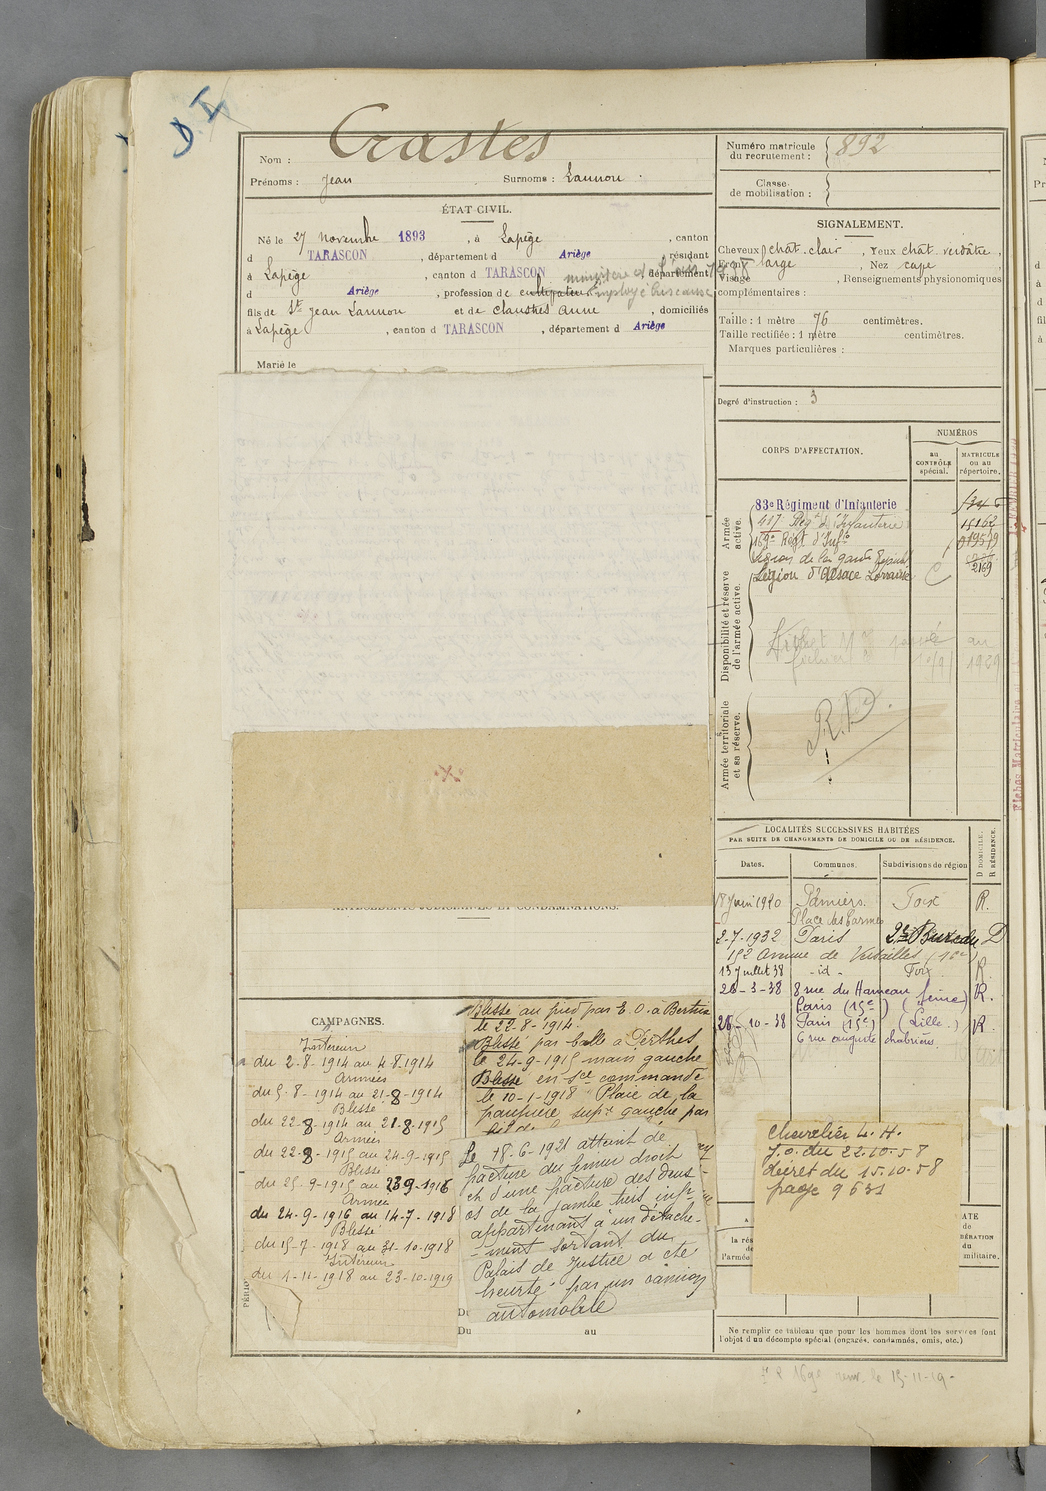 D.I
Nom : Crastes
Prénoms : Jean Surnoms : Lannou
Numéro matricule
du recrutement : 892
Classe
de mobilisation :
ÉTAT CIVIL.
Né le 27 novembre 1893, à Lapège, canton
d TARASCON, département d Ariège, résidant
à Lapège, canton d TARASCON, département
d Ariège, profession de cultivateur Employé
fils de Jean Lannou et de Claustres Anne, domiciliés
à Lapège, canton d TARASCON, département d Ariège
Marié le
SIGNALEMENT.
Cheveux chât. clair, Yeux chât verdâtre,
Front large, Nez
Visage, Renseignements physionomiques
complémentaires :
Taille : 1 mètre 76 centimètres.
Taille rectifiée : 1 mètre centimètres.
Marques particulières :
Degré d'instruction : 3
CORPS D'AFFECTATION.
NUMÉROS
au CONTRÔLE spécial.
MATRICULE ou au répertoire.
Armée active.
83e Régiment d'Infanterie
417 Régt d'Infanterie
169e Régt d'Infie
Légion de la garde Républ
Légion d'Alsace Lorraine C 2169
Disponibilité et réserve de l'armée active.
Armée territoriale et sa réserve.
LOCALITÉS SUCCESSIVES HABITÉES
PAR SUITE DE CHANGEMENTS DE DOMICILE OU DE RÉSIDENCE.
Dates. Communes. Subdivisions de région D DOMICILE. R RÉSIDENCE.
18 Juin 1920 Pamiers. Foix R.
Place des Carmes
2-7-1932 Paris 2e Bureau D
152 Avenue de Versailles (16e)
13 Juillet 38 - id - Foix R.
26-3-38 8 rue du Hameau (Seine) R.
Paris (15e)
26-10-38 Paris (15e) (Lille.) R.
6 rue auguste chabrières
ANTÉCÉDENTS JUDICIAIRES ET CONDAMNATIONS.
CAMPAGNES.
Intérieur
du 2-8-1914 au 4-8-1914
Armées
du 5-8-1914 au 21-8-1914
Blessé
du 22-8-1914 au 21-8-1915
Armées
du 22-8-1915 au 24-9-1915
Blessé
du 25-9-1915 au 23-9-1916
Armée
du 24-9-1916 au 14-7-1918
Blessé
du 15-7-1918 au 31-10-1918
Intérieur
du 1-11-1918 au 23-10-1919
Blessé au pied par E.O. à Bertrix
le 22-8-1914.
Blessé par balle à Perthes
le 24-9-1915 main gauche
Blessé en sce commandé
le 10-1-1918 Plaie de la
paupière supre gauche par
Le 18-6-1921 atteint de
fracture du fémur droit
et d'une fracture des deux
os de la jambe tiers infr
appartenant à un détache-
-ment sortant du
Palais de Justice a été
heurté par un camion
automobile
Du
Du au
chevalier L.H.
J.O. du 22.10.58
décret du 15.10.58
page 9631
Ne remplir ce tableau que pour les hommes dont les services font
l'objet d'un décompte spécial (engagés, condamnés, omis, etc.)